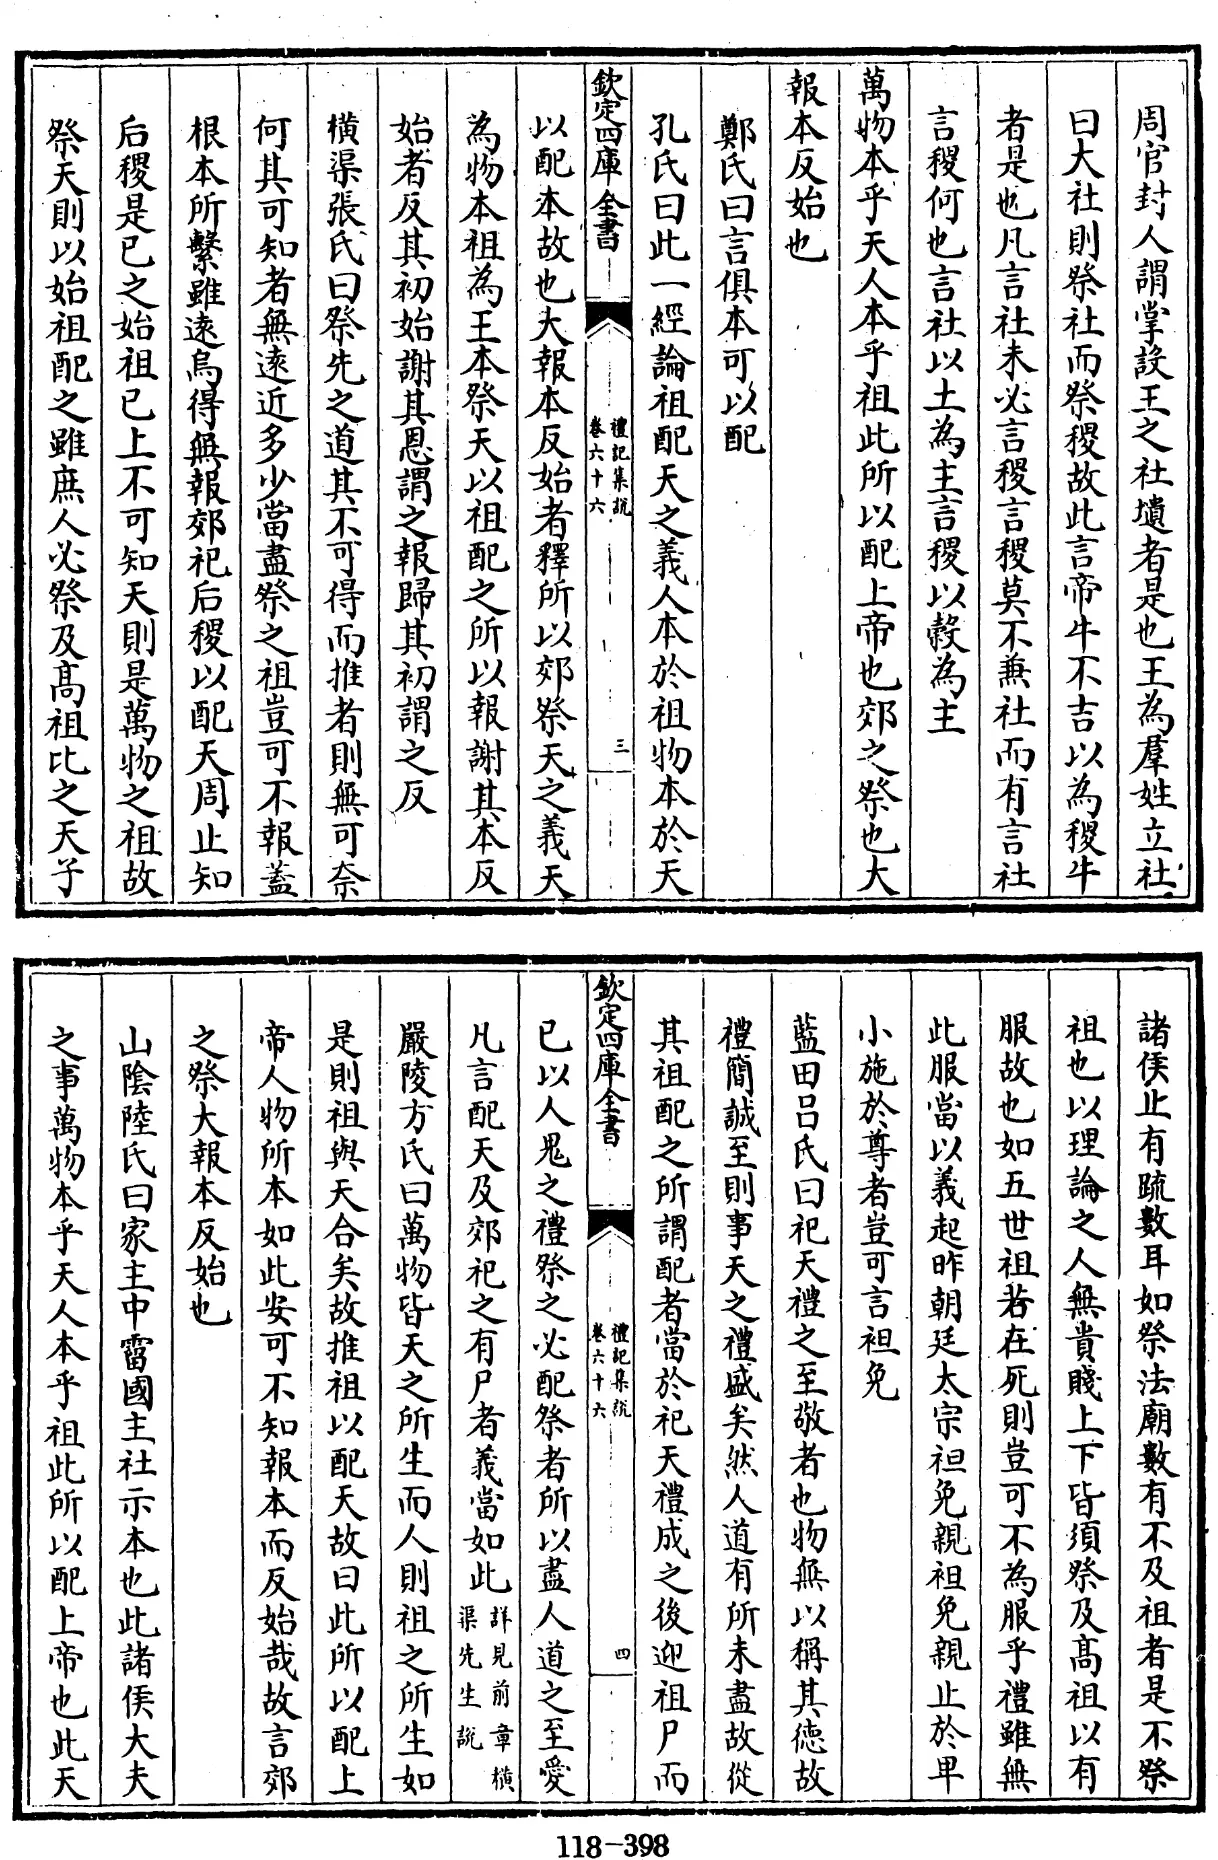 周官封人謂掌設王之社壝者是也王為羣姓立社
曰大社則祭社而祭稷故此言帝牛不吉以為稷牛
者是也凡言社未必言稷言稷莫不兼社而有言社
言稷何也言社以土為主言稷以穀為主
萬物本乎天人本乎祖此所以配上帝也郊之祭也大
報本反始也
鄭氏曰言俱本可以配
孔氏曰此一經論祖配天之義人本於祖物本於天
欽定四庫全書
禮記集說
卷六十六
三
以配本故也大報本反始者釋所以郊祭天之義天
為物本祖為王本祭天以祖配之所以報謝其本反
始者反其初始謝其恩謂之報歸其初謂之反
橫渠張氏曰祭先之道其不可得而推者則無可奈
何其可知者無遠近多少當盡祭之祖豈可不報蓋
根本所繫雖遠烏得無報郊祀后稷以配天周止知
后稷是已之始祖已上不可知天則是萬物之祖故
祭天則以始祖配之雖庶人必祭及髙祖比之天子
諸侯止有疏數耳如祭法廟數有不及祖者是不祭
祖也以理論之人無貴賤上下皆須祭及髙祖以有
服故也如五世祖若在死則豈可不為服乎禮雖無
此服當以義起昨朝廷太宗袒免親袒免親止於卑
小施於尊者豈可言袒免
藍田呂氏曰祀天禮之至敬者也物無以稱其德故
禮簡誠至則事天之禮盛矣然人道有所未盡故從
其祖配之所謂配者當於祀天禮成之後迎祖尸而
欽定四庫全書
禮記集說
卷六十六
四
已以人鬼之禮祭之必配祭者所以盡人道之至愛
凡言配天及郊祀之有尸者義當如此詳見前章橫渠先生說
嚴陵方氏曰萬物皆天之所生而人則祖之所生如
是則祖與天合矣故推祖以配天故曰此所以配上
帝人物所本如此安可不知報本而反始哉故言郊
之祭大報本反始也
山陰陸氏曰家主中霤國主社示本也此諸侯大夫
之事萬物本乎天人本乎祖此所以配上帝也此天
118-398